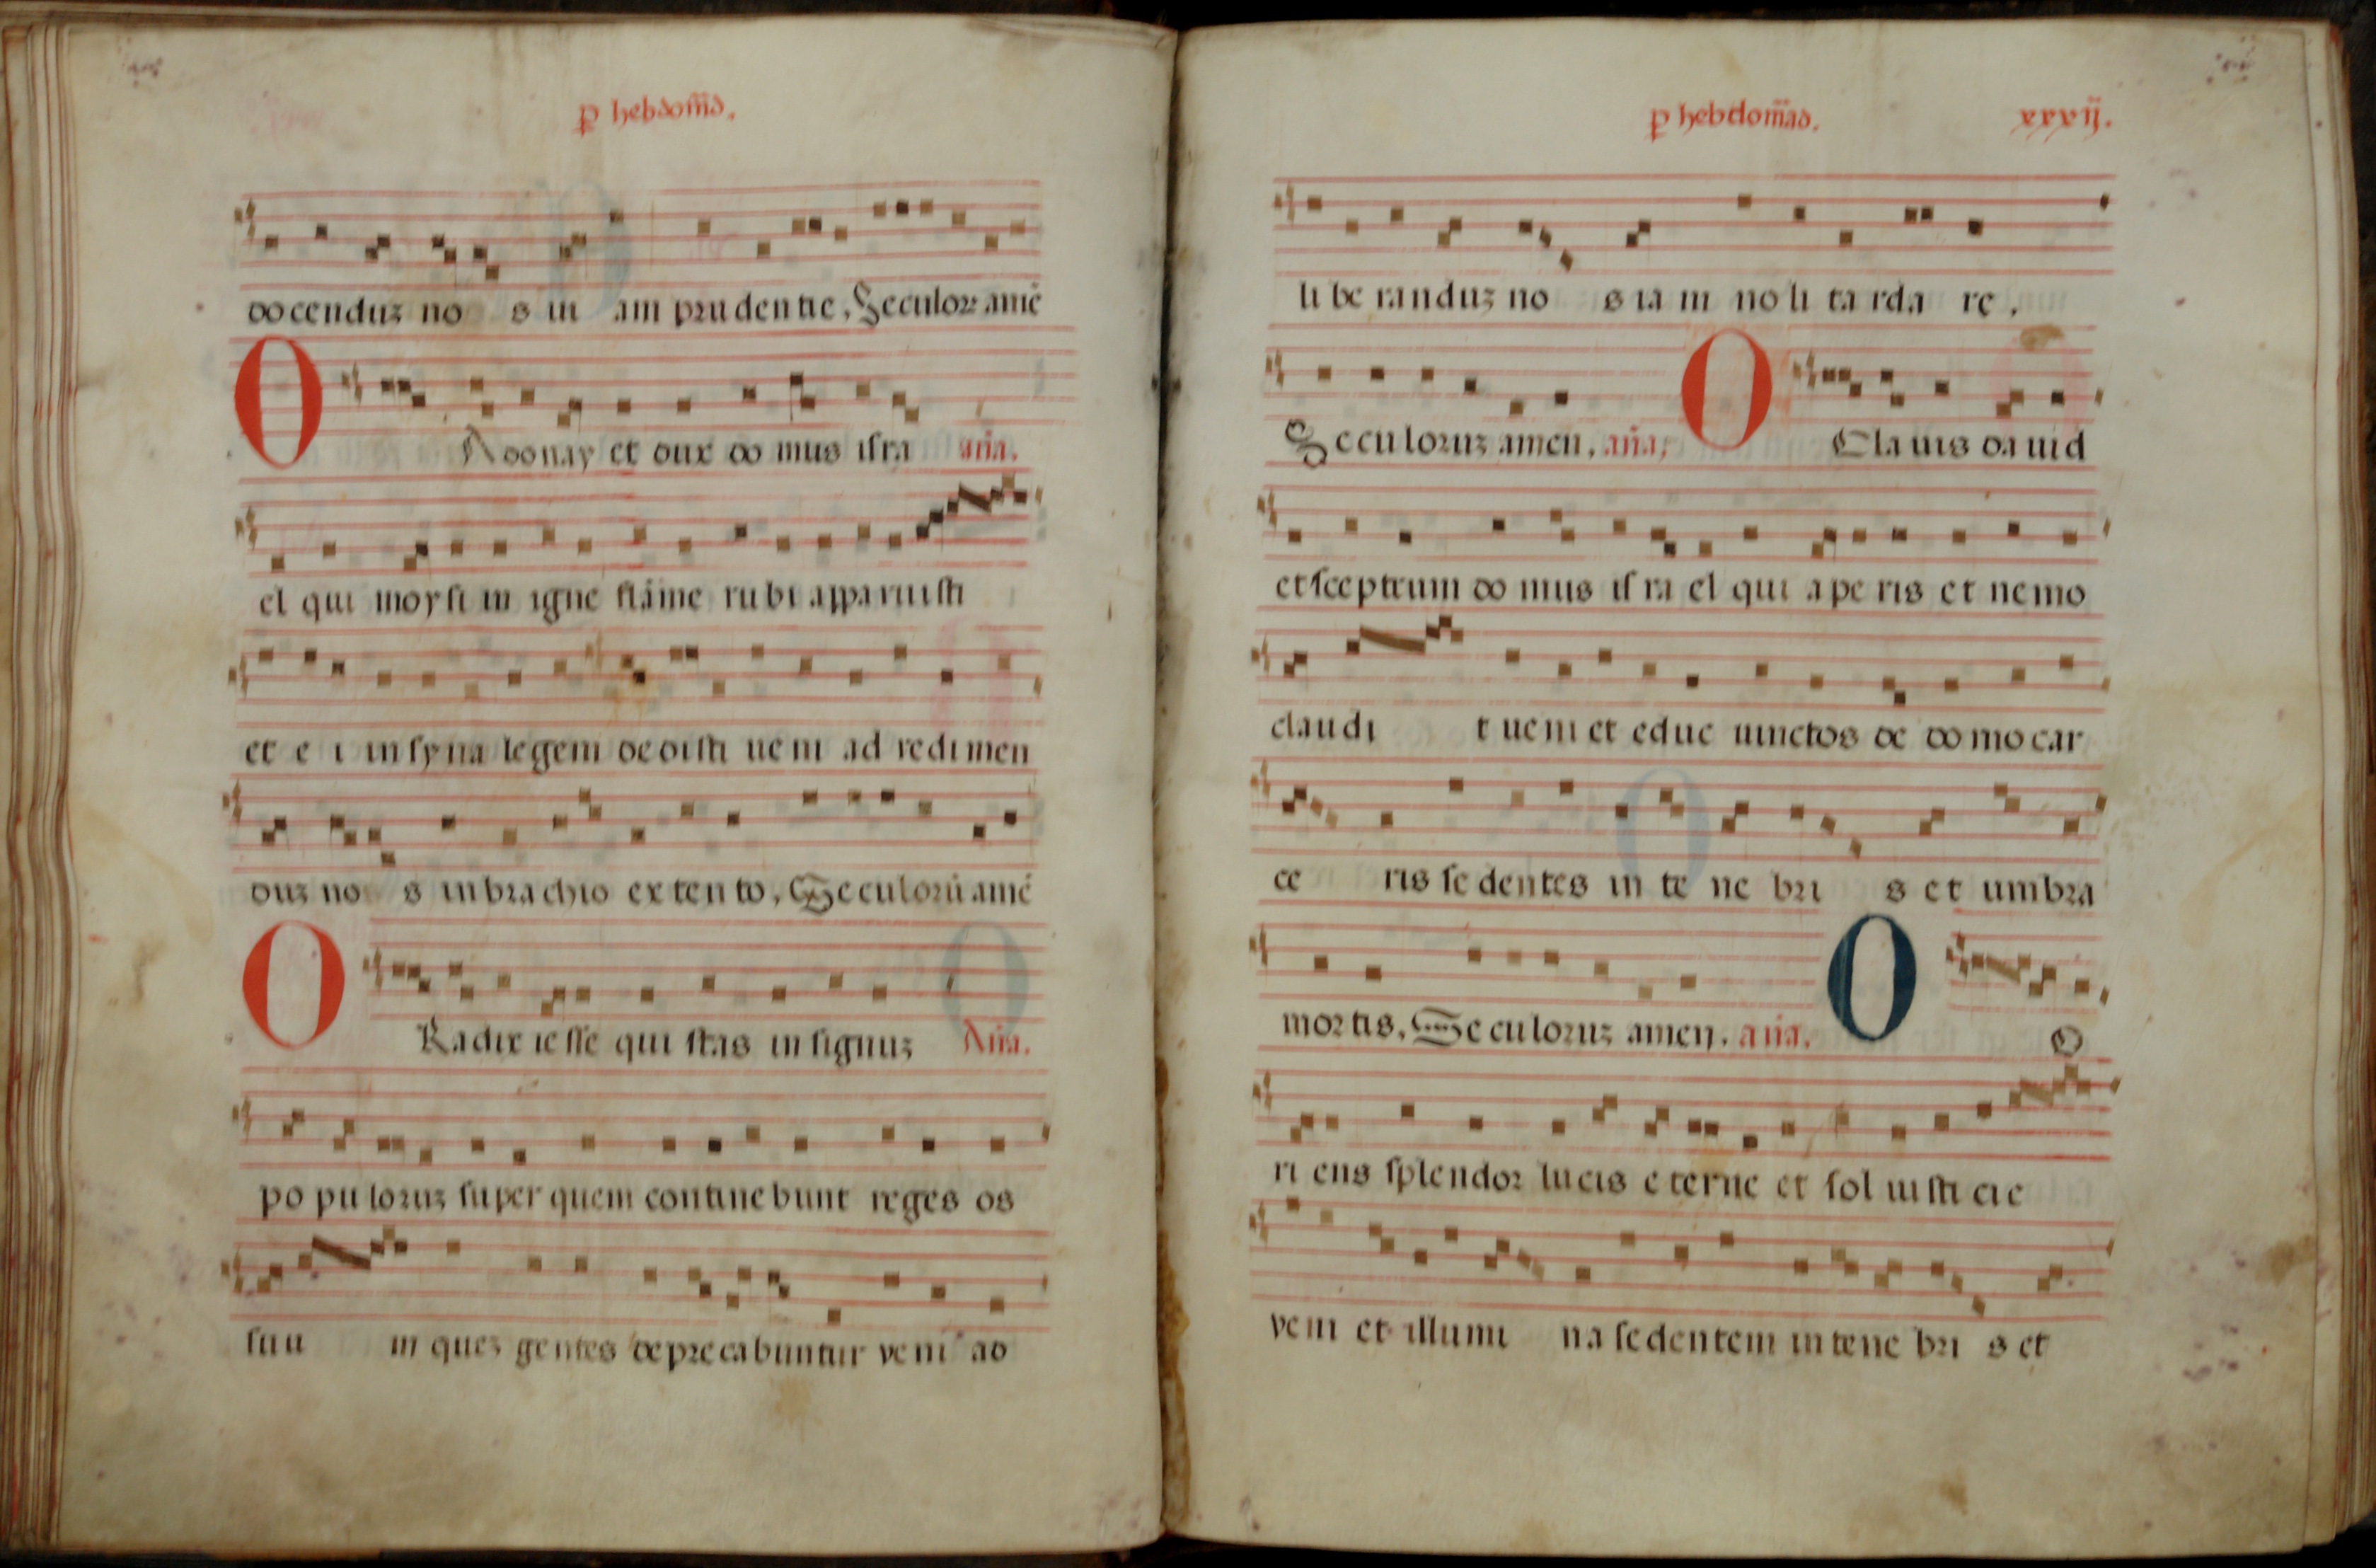 ꝑ hebdom̄d.
docenduz no s ui am prudentie, Seculoꝝ amē
O Adonay et dux do mus isra an̄a.
el qui moysi in igne flāme rubi apparuisti
et e i in syna legem dedisti ueni ad redimen
duz no s in brachio extento, Seculorū amē
O Radix iesse qui stas in signuz An̄a.
populoruz super quem continebunt reges os
suu m quez gentes deprecabuntur veni ad
ꝑ hebdom̄ad. xxxij.
liberanduz no s iam noli tardare.
Seculoruz amen, an̄a, O Clauis dauid
et sceptrum domus israel qui aperis et nemo
claudi t ueni et educ uinctos de domo car
ce ris sedentes in tenebri s et umbra
mortis, Seculoruz amen. an̄a. O O
riens splendor lucis eterne et sol iusticie
veni et illumi na sedentem in tenebri s et